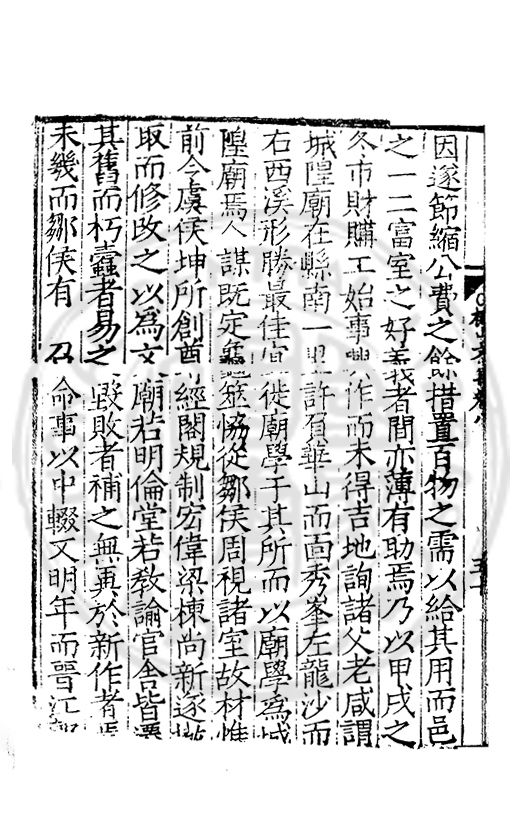 因逐節縮公費之餘措置百物之需以給其用而邑
之一二富室之好義者間亦薄有助焉乃以甲戌之
冬市財購工始事興作而未得吉地詢諸父老咸謂
城隍廟在縣南一里許負華山而面秀峯左龍沙而
右西溪形勝最佳宜徙廟學于其所而以廟學為城
隍廟焉人謀既定龜筮恊從鄒侯周視諸室故材惟
前令虞侯坤所創尊經閣規制宏偉梁棟尚新遂
取而修改之以為文廟若明倫堂若敎諭官舎皆
其舊而朽蠧者易之毀敗者補之無異於新作者焉
未幾而鄒侯有召命事以中輟又明年而晉江